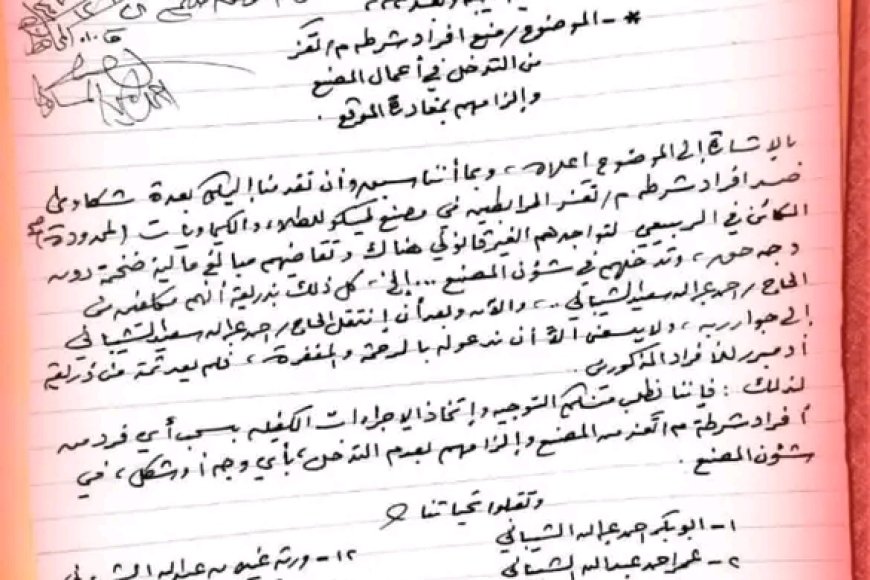 *- الموضوع/ منع افراد شرطه م/ تعز
من التدخل في أعمال المصنع
وإلزامهم بمغادرة الموقع .
بالإشارة إلى الموضوع اعلاه ، وبما أننا سبق وأن تقدمنا إليكم بعدة شكاوى
ضد افراد شرطه م/ تعز المرابطين في مصنع للطلاء والكيماويات (المحدودة)
الكائن في الربيعي لتواجدهم الغير قانوني هناك وتقاضيهم مبالغ مالية ضخمة دون
وجه حق ، وتدخلهم في شؤون المصنع ... إلخ ، كل ذلك بذريعة أنهم مكلفين من
الحاج / احمد عبدالله سعيد الشيباني .. ، والآن وبعد أن إنتقل الحاج / احمد عبدالله سعيد الشيباني
إلى جوار ربه ، ولا يسعنى ألا أن ندعو له بالرحمة والمغفرة ، فلم يعد ثمة من ذريعة
أو مبرر للأفراد المذكورين .
لذلك : فإننا نطلب منكم التوجيه وإتخاذ الإجراءات الكفيله بسحب أي فرد من
أفراد شرطة م/ تعز من المصنع وإلزامهم بعدم التدخل ، بأي وجه أو شكل ، في
شؤون المصنع .
وتقبلوا تحياتنا
١- ابوبكر احمد عبدالله الشيباني
٢- عمر احمد عبدالله الشيباني
١٢- ورثة عبدالله